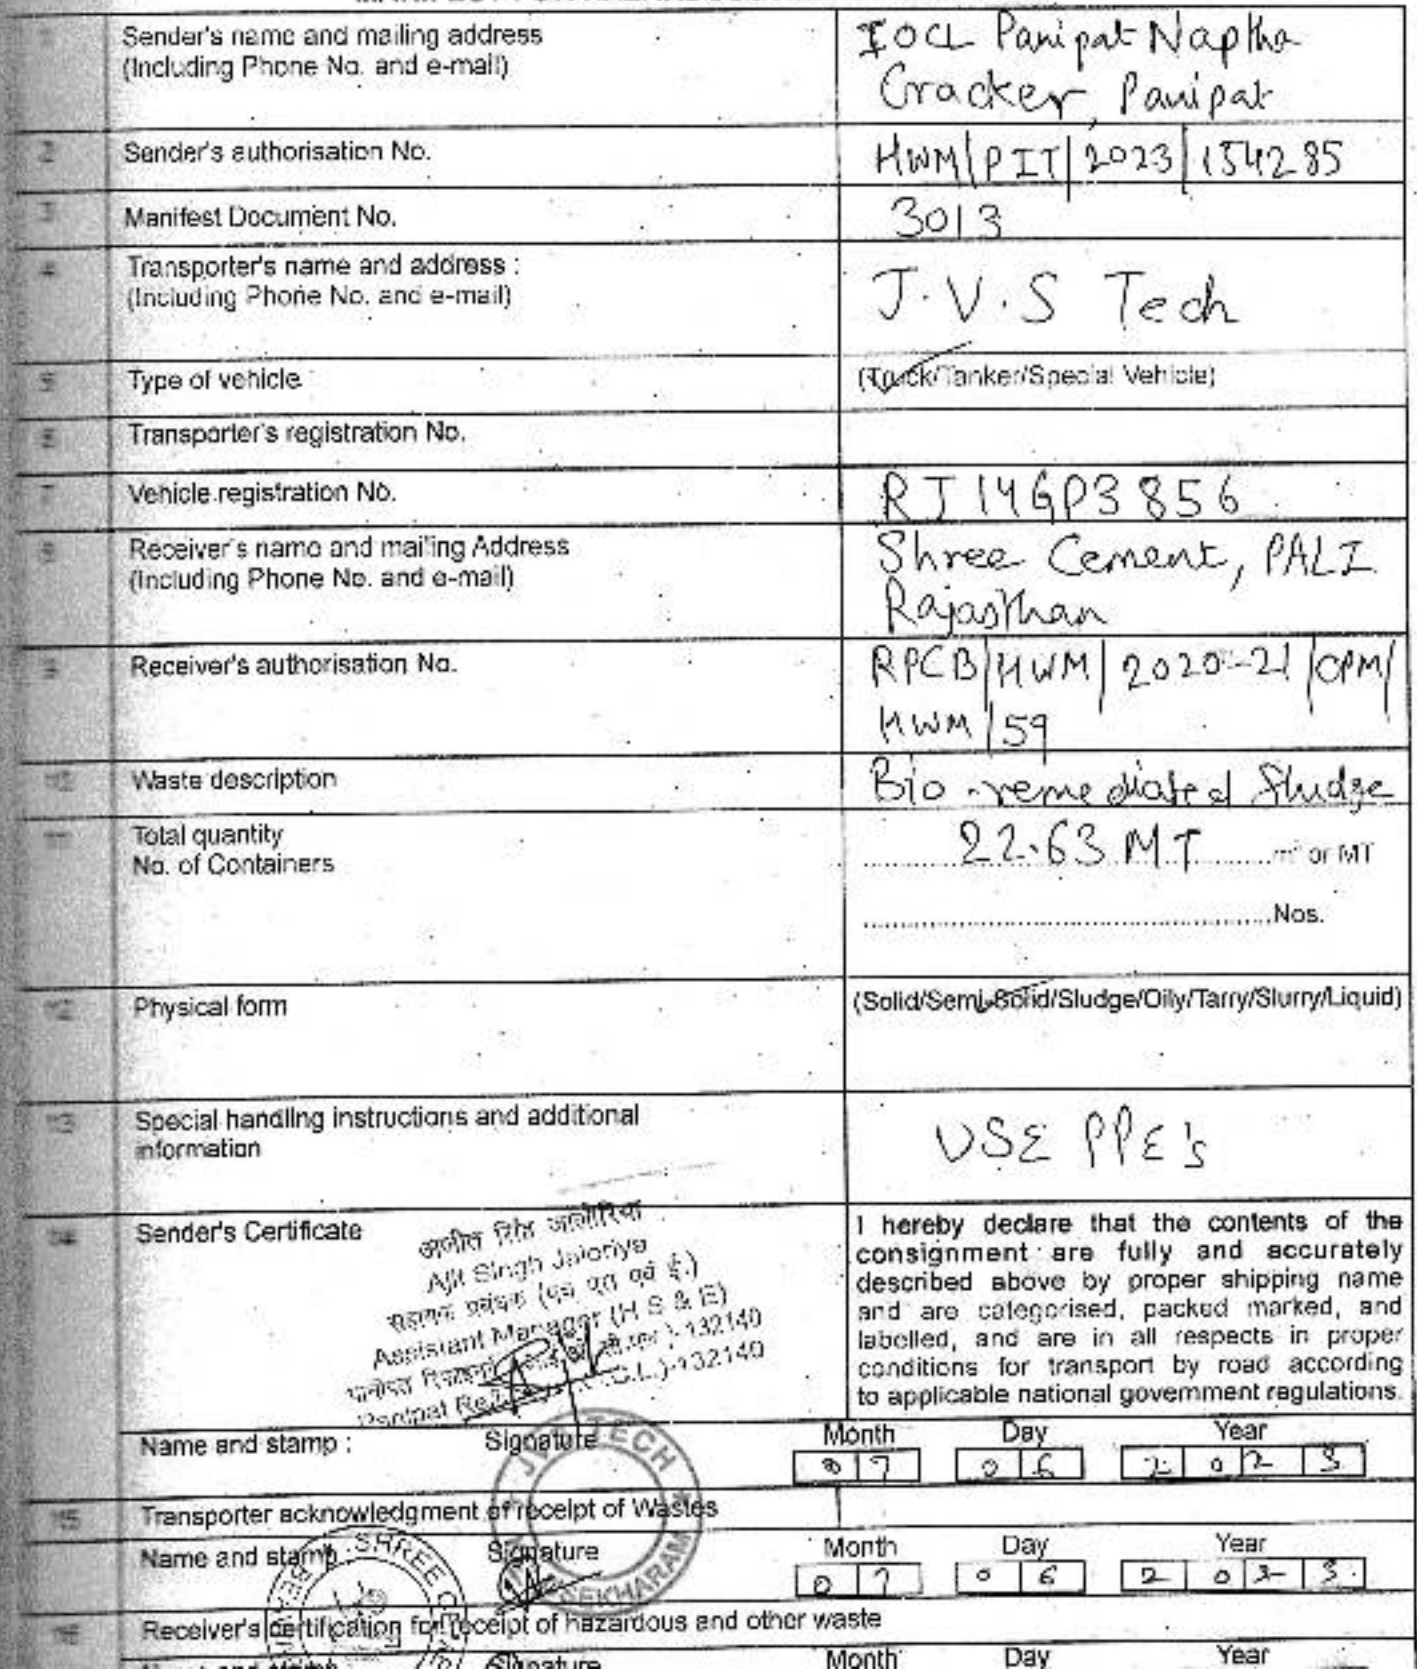 1 Sender's name and mailing address
(Including Phone No. and e-mail)
IOCL Panipat Naptha
Cracker, Panipat
2 Sender's authorisation No.
HWM/PIT/2023/154285
3 Manifest Document No.
3013
4 Transporter's name and address :
(Including Phone No. and e-mail)
J.V.S Tech
5 Type of vehicle
(Truck/Tanker/Special Vehicle)
6 Transporter's registration No.
7 Vehicle registration No.
RJ14GP3856
8 Receiver's name and mailing Address
(Including Phone No. and e-mail)
Shree Cement, PALI
Rajasthan
9 Receiver's authorisation No.
RPCB/HWM/2020-21/OPM/
HWM/59
10 Waste description
Bio-remediated Sludge
11 Total quantity
No. of Containers
22.63 MT m³ or MT
Nos.
12 Physical form
(Solid/Semi-Solid/Sludge/Oily/Tarry/Slurry/Liquid)
13 Special handling instructions and additional
information
USE PPE's
14 Sender's Certificate
Ajit Singh Jaloriya
Assistant Manager (H S & E)
132140
Panipat 132140
I hereby declare that the contents of the
consignment are fully and accurately
described above by proper shipping name
and are categorised, packed marked, and
labelled, and are in all respects in proper
conditions for transport by road according
to applicable national government regulations.
Name and stamp : Signature Month Day Year
07 06 2023
JVS TECH
SEKHARAM
15 Transporter acknowledgment of receipt of Wastes
Name and stamp : Signature Month Day Year
07 06 2023
SHREE
16 Receiver's certification for receipt of hazardous and other waste
Name and stamp Signature Month Day Year